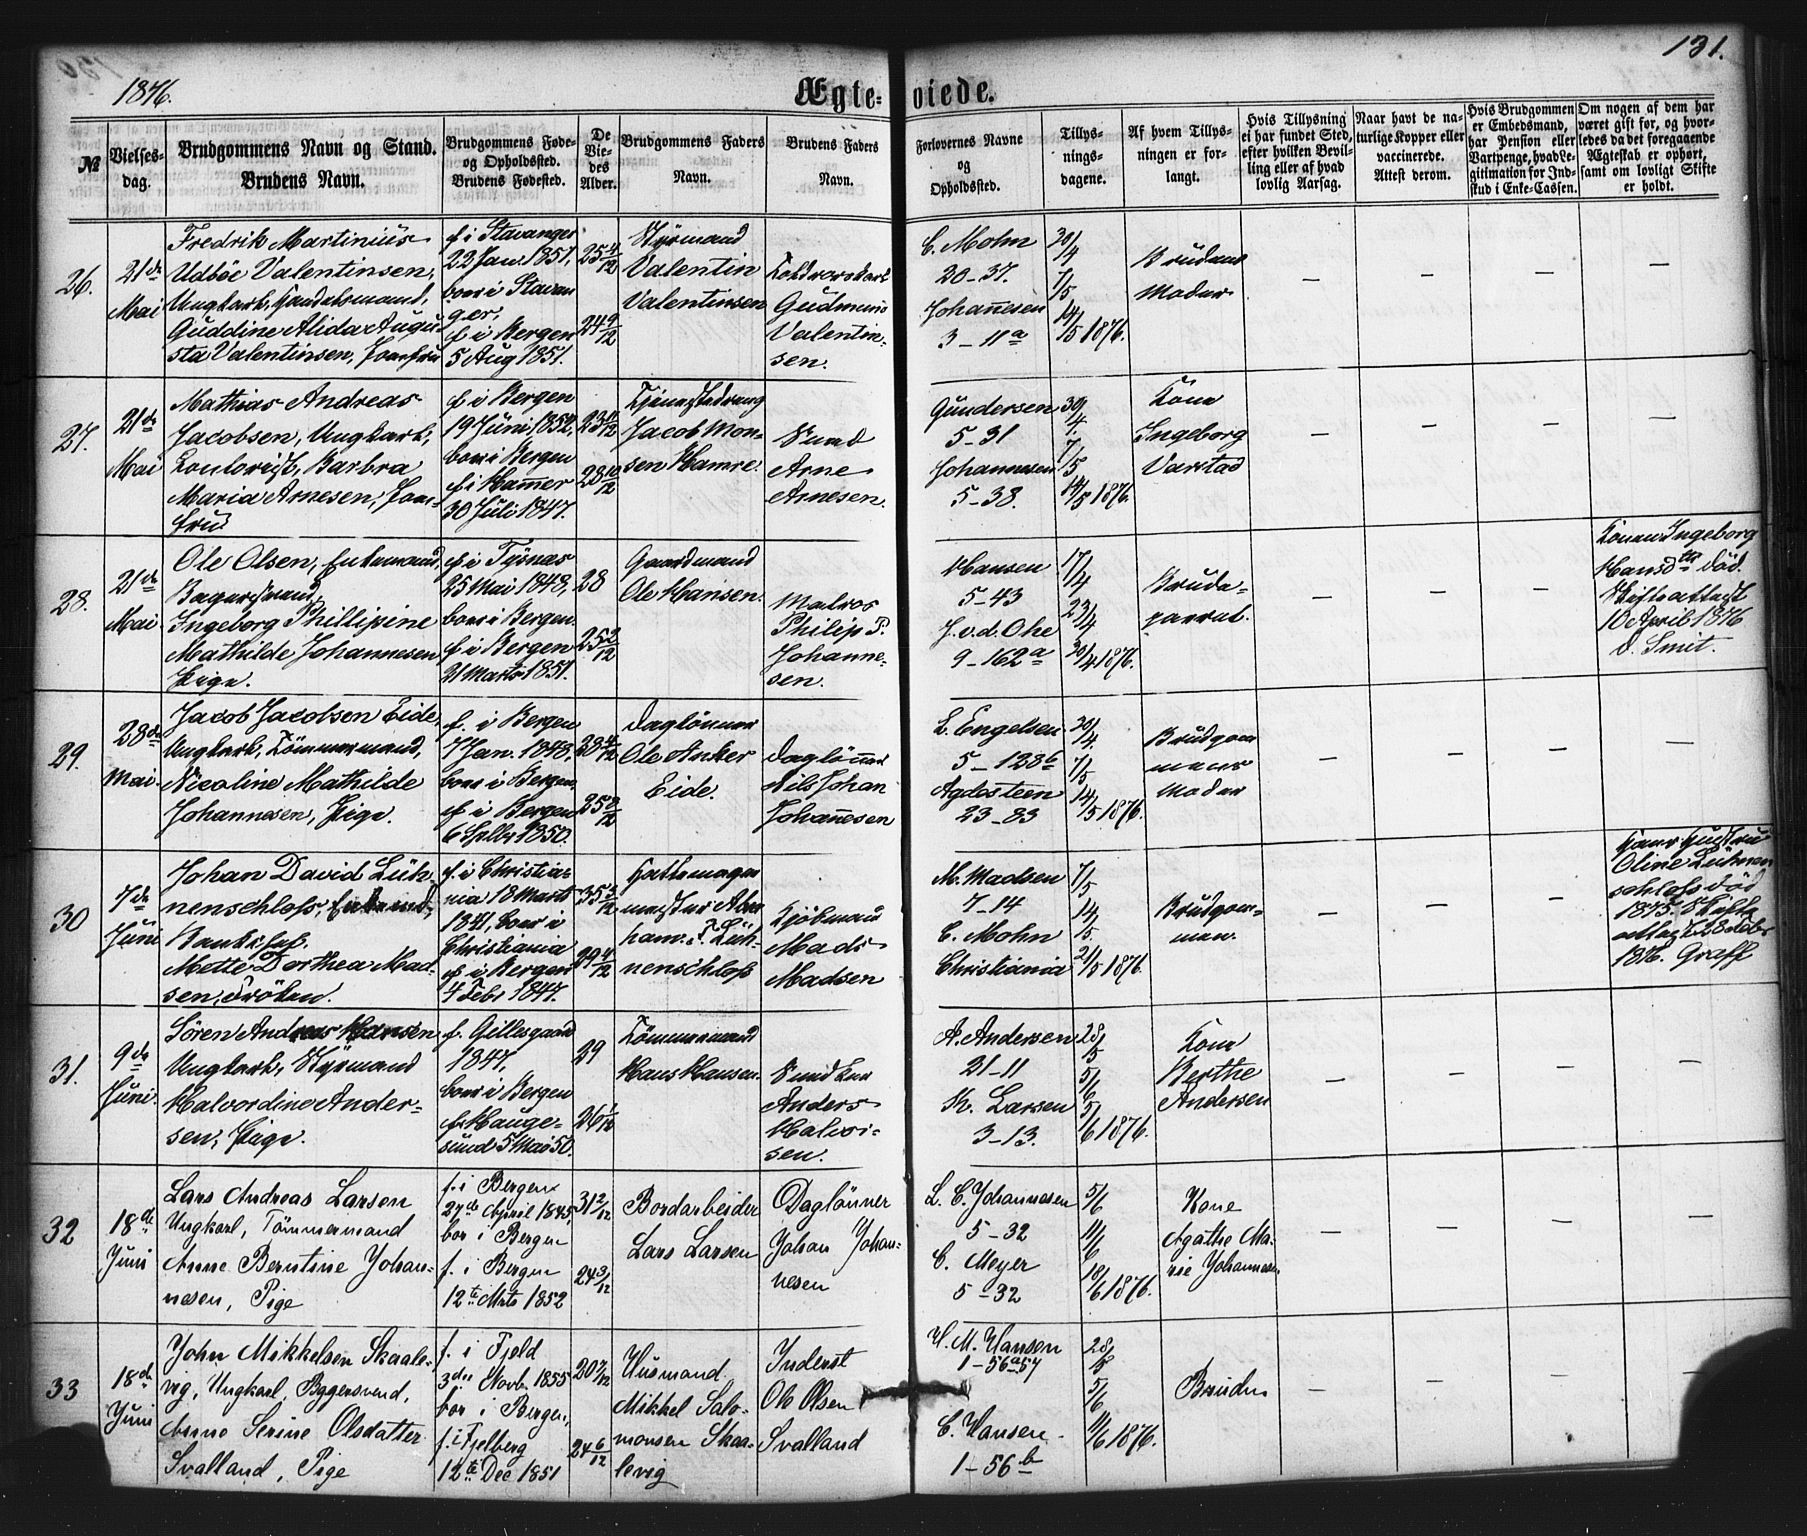 1876.
131.
Ægte-
viede.
№
Vielses-
dag.
Brudgommens Navn og Stand.
Brudens Navn.
Brudgommens Føde-
og Opholdssted.
Brudens Fødested.
De
Vie-
des
Alder.
Brudgommens Faders
Navn.
Brudens Faders
Navn.
Forlovernes Navne
og
Opholdssted.
Tillys-
nings-
dagene.
Af hvem Tillys-
ningen er for-
langt.
Hvis Tillysning
ei har fundet Sted,
efter hvilken Bevil-
ling eller af hvad
lovlig Aarsag.
Naar havt de na-
turlige Kopper eller
vaccinerede.
Attest derom.
Hvis Brudgommen
er Embedsmand,
har Pension eller
Vartpenge, hvad Le-
gitimation for Ind-
skud i Enke-Cassen.
Om nogen af dem har
været gift før, og hvor-
ledes da det foregaaende
Ægteskab er ophørt,
samt om lovligt Skifte
er holdt.
26.
21de
Mai
Fredrik Martinius
Udbøe Valentinsen,
Ungkarl, Handelsmand,
Guddine Alida Augu-
sta Valentinsen, Jomfru
f. i Stavanger
22 Jan. 1851,
boer i Stavan
ger,
f. i Bergen
5 Aug 1851.
25 4/12
24 9/12
Styrmand
Valentin
Valentinsen
Gudmund
Valentin-
sen.
C. Mohn
20-37.
Johannesen
3-11a
30/4
7/5
14/5 1876.
Brudens
Moder
27.
21de
Mai
Mathias Andreas
Jacobsen, Ungkarl,
Contorist, Barbra
Maria Arnesen, Jom-
fru
f. i Bergen
19 Juni 1852,
boer i Bergen
f. i Hammer
30 Juli 1847.
23 11/12
28 10/12
Jacob Mon-
sen Hamre.
Arne
Arnesen.
Gundersen
5-31
Johannesen
5-38.
30/4
7/5
14/5 1876.
Kone
Ingeborg
Varstad
28.
21de
Mai
Ole Olsen, Enkemand,
Bagersvend,
Ingeborg Phillipine
Mathilde Johannesen
Pige.
f. i Tysnæs
25 Mai 1848,
boer i Bergen
f. i Bergen
21 Marts 1851.
28
25 2/12
Gaardmand
Ole Hansen.
Matros
Philip P.
Johanne-
sen.
Hansen
5-43
J. v. d. Ohe
9-162a
17/4
23/4
30/4 1876.
Brude-
parret.
Konen Ingeborg
Hansdtr død.
Skifteattest
10 April 1876
d. Smit.
29.
28de
Mai
Jacob Jacobsen Eide,
Ungkarl, Tömmermand,
Nicoline Mathilde
Johannesen, Pige.
f. i Bergen
7 Jan. 1848,
boer i Bergen,
f. i Bergen
6 Septbr 1850.
28 4/12
25 8/12
Daglönner
Ole Anker
Eide.
Daglönner
Nils Johan
Johannesen
L. Engelsen
5-128b
Agdesteen
23-83
30/4
7/5
14/5 1876.
Brudgom
mens
Moder
30
7de
Juni
Johan David Lüh-
nenschloss, Enkemd,
Bankchef.
Mette Dorthea Mad-
sen, Fröken.
f. i Christia-
nia 18 Marts
1841, boer i
Christiania
f. i Bergen
4 Febr 1847.
35 3/12
29 4/12
Hattemager
mester Abra
ham F. Lüh-
nenschloss
Kjöbmand
Mads
Madsen
M. Madsen
7-14
C. Mohn
Christiania
7/5
14/5
21/5 1876.
Brudgom-
men.
Oline Lühnen
schloss död
1875. Skifte
1876. Graff
31.
9de
Juni.
Sören Andreas Hansen
Ungkarl, Styrmand
Halvordine Ander-
sen, Pige.
f. Gillesgaard
1847,
boer i Bergen
f. Hauge-
sund 5 Mai 50.
29
26 1/12
Tömmermand
Hans Hansen.
Anders
Halvor-
sen.
A. Andersen
21-11
K. Larsen
3-13.
28/5
5/6
5/6 1876.
Kone
Berthe
Andersen
32
18de
Juni
Lars Andreas Larsen
Ungkarl, Tömmermand
Anne Berntine Johan-
nesen, Pige
f. i Bergen
27de April 1845,
bor i Bergen
f. i Bergen
12te Mrts 1852
31 2/12
24 3/12
Bordarbeider
Lars Larsen
Daglönner
Johan Johan-
nesen
L. C. Johannesen
5-32
C. Meyer
5-32
5/6
11/6
18/6 1876.
Kone
Agathe Ma-
rie Johannesen
33
18de
Juni
John Mikkelsen Skaale-
vig, Ungkarl, Byggersvend,
Anne Serine Olsdatter
Svalland, Pige
f. i Fjeld
3die Novb. 1855
bor i Bergen,
f. i Fjelberg
12te Dec 1851
20 7/12
24 6/12
Husmand
Mikkel Salo-
monsen Skaa-
levig
Inderst
Ole Olsen
Svalland
H. M. Hansen
1-56a57
C. Hansen
1-56b
28/5
5/6
11/6 1876.
Bruden